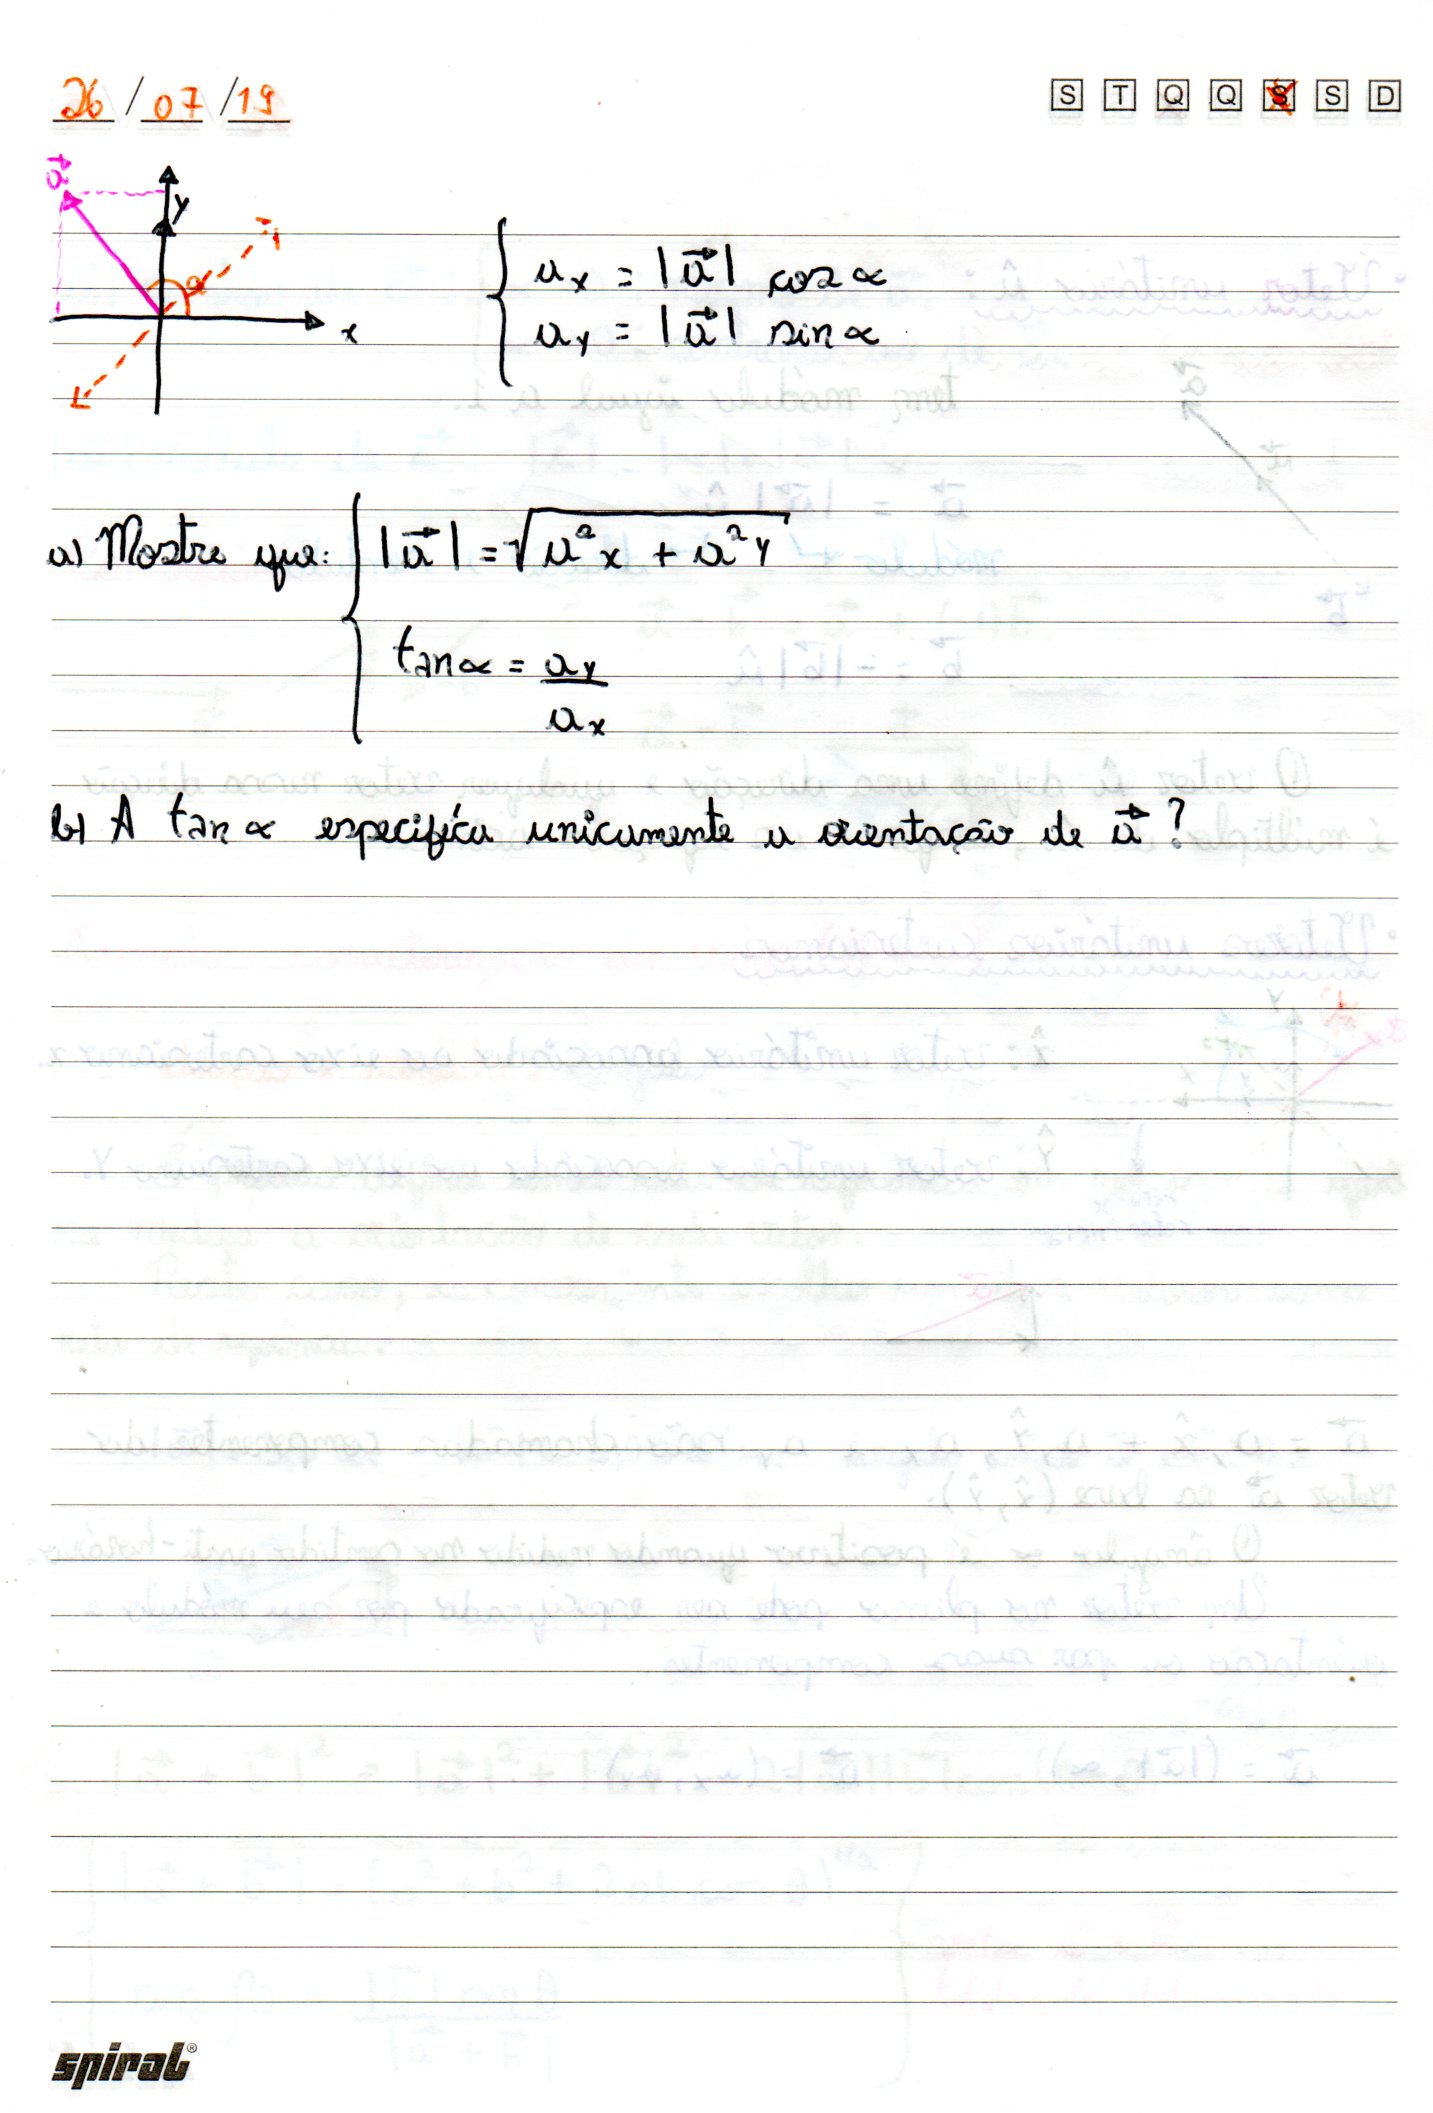 26/07/19 S T Q Q S S D
a⃗
y
α
x
a_x = |a⃗| cos α
a_y = |a⃗| sin α
a) Mostre que: |a⃗| = √a²x + a²y
tan α = a_y / a_x
b) A tan α especifica unicamente a orientação de a⃗?
spiral®